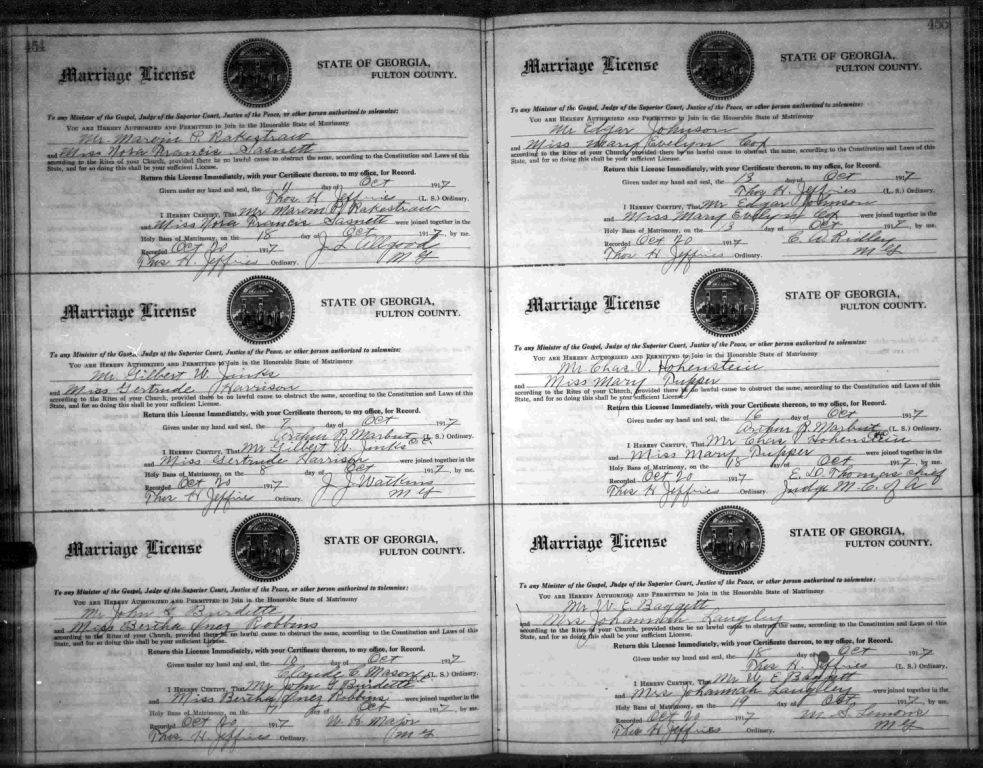 454
Marriage License
STATE OF GEORGIA,
FULTON COUNTY.
To any Minister of the Gospel, Judge of the Superior Court, Justice of the Peace, or other person authorized to solemnize:
YOU ARE HEREBY AUTHORIZED AND PERMITTED to Join in the Honorable State of Matrimony
Mr. Marvin P. Rakestraw
and Miss Nora Francis Sasnett
according to the Rites of your Church, provided there be no lawful cause to obstruct the same, according to the Constitution and Laws of this
State, and for so doing this shall be your sufficient License.
Return this License Immediately, with your Certificate thereon, to my office, for Record.
Given under my hand and seal, the 11 day of Oct 1917
Thos H. Jeffries (L. S.) Ordinary.
I HEREBY CERTIFY, That Mr Marvin P. Rakestraw
and Miss Nora Francis Sasnett were joined together in the
Holy Bans of Matrimony, on the 18 day of Oct 1917, by me.
Recorded Oct 20 1917 J L Allgood
Thos H Jeffries Ordinary. M G
Marriage License
STATE OF GEORGIA,
FULTON COUNTY.
To any Minister of the Gospel, Judge of the Superior Court, Justice of the Peace, or other person authorized to solemnize:
YOU ARE HEREBY AUTHORIZED AND PERMITTED to Join in the Honorable State of Matrimony
Mr. Gilbert W. Jinks
and Miss Gertrude Harrison
according to the Rites of your Church, provided there be no lawful cause to obstruct the same, according to the Constitution and Laws of this
State, and for so doing this shall be your sufficient License.
Return this License Immediately, with your Certificate thereon, to my office, for Record.
Given under my hand and seal, the 7 day of Oct 1917
Arthur R. Marbut (L. S.) Ordinary.
I HEREBY CERTIFY, That Mr Gilbert W. Jinks
and Miss Gertrude Harrison were joined together in the
Holy Bans of Matrimony, on the 8 day of Oct 1917, by me.
Recorded Oct 20 1917 J J Watkins
Thos H Jeffries Ordinary. M G
Marriage License
STATE OF GEORGIA,
FULTON COUNTY.
To any Minister of the Gospel, Judge of the Superior Court, Justice of the Peace, or other person authorized to solemnize:
YOU ARE HEREBY AUTHORIZED AND PERMITTED to Join in the Honorable State of Matrimony
Mr John G Burdette
and Miss Bertha Inez Robbins
according to the Rites of your Church, provided there be no lawful cause to obstruct the same, according to the Constitution and Laws of this
State, and for so doing this shall be your sufficient License.
Return this License Immediately, with your Certificate thereon, to my office, for Record.
Given under my hand and seal, the 16 day of Oct 1917
Claude C Mason (L. S.) Ordinary.
I HEREBY CERTIFY, That Mr John G Burdette
and Miss Bertha Inez Robbins were joined together in the
Holy Bans of Matrimony, on the 17 day of Oct 1917, by me.
Recorded Oct 20 1917 W H Major
Thos H Jeffries Ordinary. M G
455
Marriage License
STATE OF GEORGIA,
FULTON COUNTY.
To any Minister of the Gospel, Judge of the Superior Court, Justice of the Peace, or other person authorized to solemnize:
YOU ARE HEREBY AUTHORIZED AND PERMITTED to Join in the Honorable State of Matrimony
Mr Edgar Johnson
and Miss Mary Evelyn Cox
according to the Rites of your Church, provided there be no lawful cause to obstruct the same, according to the Constitution and Laws of this
State, and for so doing this shall be your sufficient License.
Return this License Immediately, with your Certificate thereon, to my office, for Record.
Given under my hand and seal, the 13 day of Oct 1917
Thos H. Jeffries (L. S.) Ordinary.
I HEREBY CERTIFY, That Mr Edgar Johnson
and Miss Mary Evelyn Cox were joined together in the
Holy Bans of Matrimony, on the 13 day of Oct 1917, by me.
Recorded Oct 20 1917 C. W. Ridley
Thos H Jeffries Ordinary. M G
Marriage License
STATE OF GEORGIA,
FULTON COUNTY.
To any Minister of the Gospel, Judge of the Superior Court, Justice of the Peace, or other person authorized to solemnize:
YOU ARE HEREBY AUTHORIZED AND PERMITTED to Join in the Honorable State of Matrimony
Mr Chas. V. Hohenstein
and Miss Mary Dupper
according to the Rites of your Church, provided there be no lawful cause to obstruct the same, according to the Constitution and Laws of this
State, and for so doing this shall be your sufficient License.
Return this License Immediately, with your Certificate thereon, to my office, for Record.
Given under my hand and seal, the 16 day of Oct 1917
Arthur R. Marbut (L. S.) Ordinary.
I HEREBY CERTIFY, That Mr Chas Hohenstein
and Miss Mary Dupper were joined together in the
Holy Bans of Matrimony, on the 18 day of Oct 1917, by me.
Recorded Oct 20 1917 E. D. Thomas Chief
Thos H Jeffries Ordinary. Judge M. C. of A
Marriage License
STATE OF GEORGIA,
FULTON COUNTY.
To any Minister of the Gospel, Judge of the Superior Court, Justice of the Peace, or other person authorized to solemnize:
YOU ARE HEREBY AUTHORIZED AND PERMITTED to Join in the Honorable State of Matrimony
Mr. W. E. Baggett
and Mrs Johannah Langley
according to the Rites of your Church, provided there be no lawful cause to obstruct the same, according to the Constitution and Laws of this
State, and for so doing this shall be your sufficient License.
Return this License Immediately, with your Certificate thereon, to my office, for Record.
Given under my hand and seal, the 18 day of Oct 1917
Thos H. Jeffries (L. S.) Ordinary.
I HEREBY CERTIFY, That Mr W. E Baggett
and Mrs Johannah Langley were joined together in the
Holy Bans of Matrimony, on the 19 day of Oct 1917, by me.
Recorded Oct 20 1917 M. S. Lemons
Thos H Jeffries Ordinary. M G